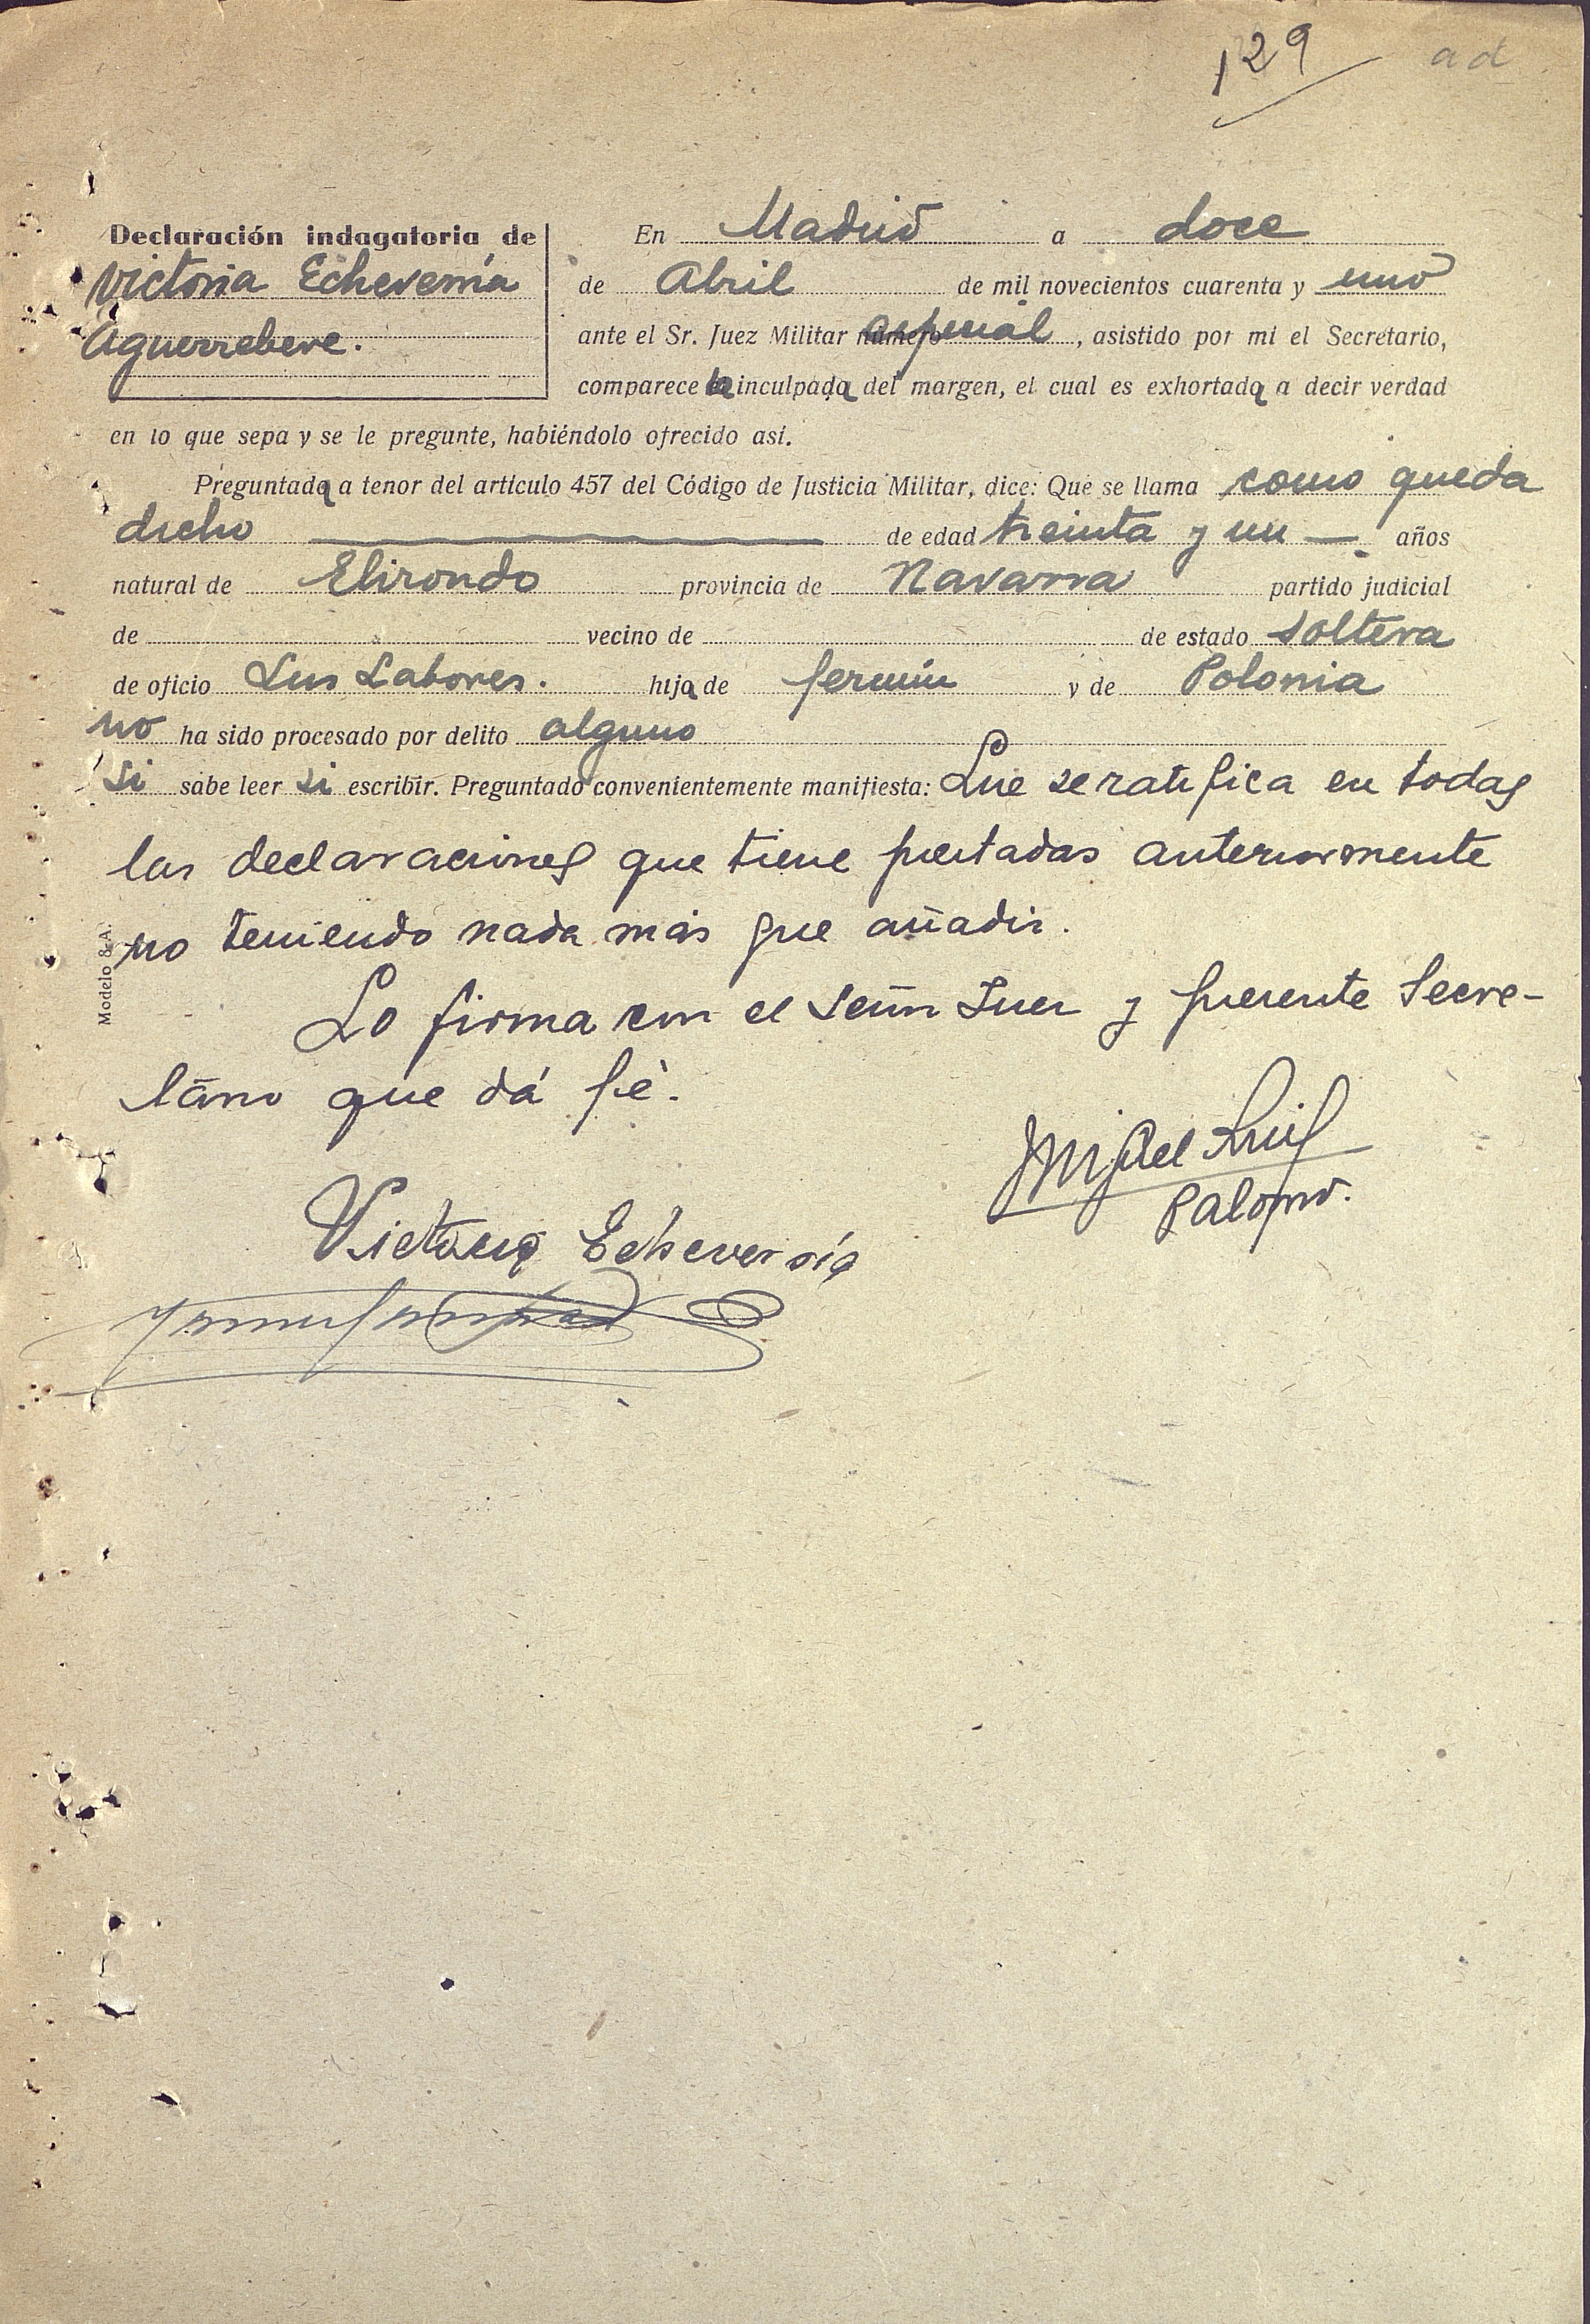 129 ad
Declaración indagatoria de
Victoria Echeverría
Aguerrebere.
En Madrid a doce
de Abril de mil novecientos cuarenta y uno
ante el Sr. Juez Militar número especial, asistido por mi el Secretario,
comparece la inculpada del margen, el cual es exhortada a decir verdad
en lo que sepa y se le pregunte, habiéndolo ofrecido así.
Preguntada a tenor del artículo 457 del Código de Justicia Militar, dice: Que se llama como queda
dicho de edad treinta y un — años
natural de Elirondo provincia de Navarra partido judicial
de vecino de de estado soltera
de oficio Sus Labores. hija de fermín y de Polonia
no ha sido procesado por delito alguno
si sabe leer si escribir. Preguntado convenientemente manifiesta: Que se ratifica en todas
las declaraciones que tiene prestadas anteriormente
no teniendo nada más que añadir.
Lo firma con el Señor Juez y presente Secre-
tario que dá fé.
Miguel Ruiz
Palomo.
Victoria Echeverría
Modelo 8-A.